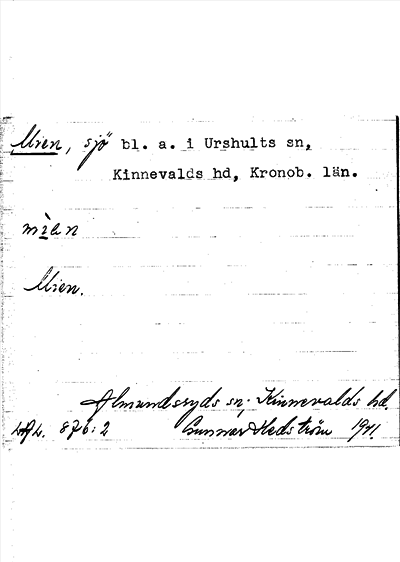 Mien, sjö bl. a. i Urshults sn,
Kinnevalds hd, Kronob. län.
Mien.
Almundsryds sn; Kinnevalds hd.
876:2 Gunnar Hedström 1941.